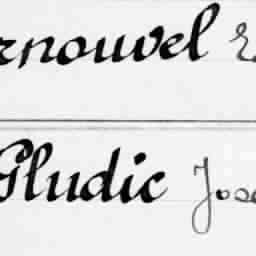 rnouvel
Pludic Jos